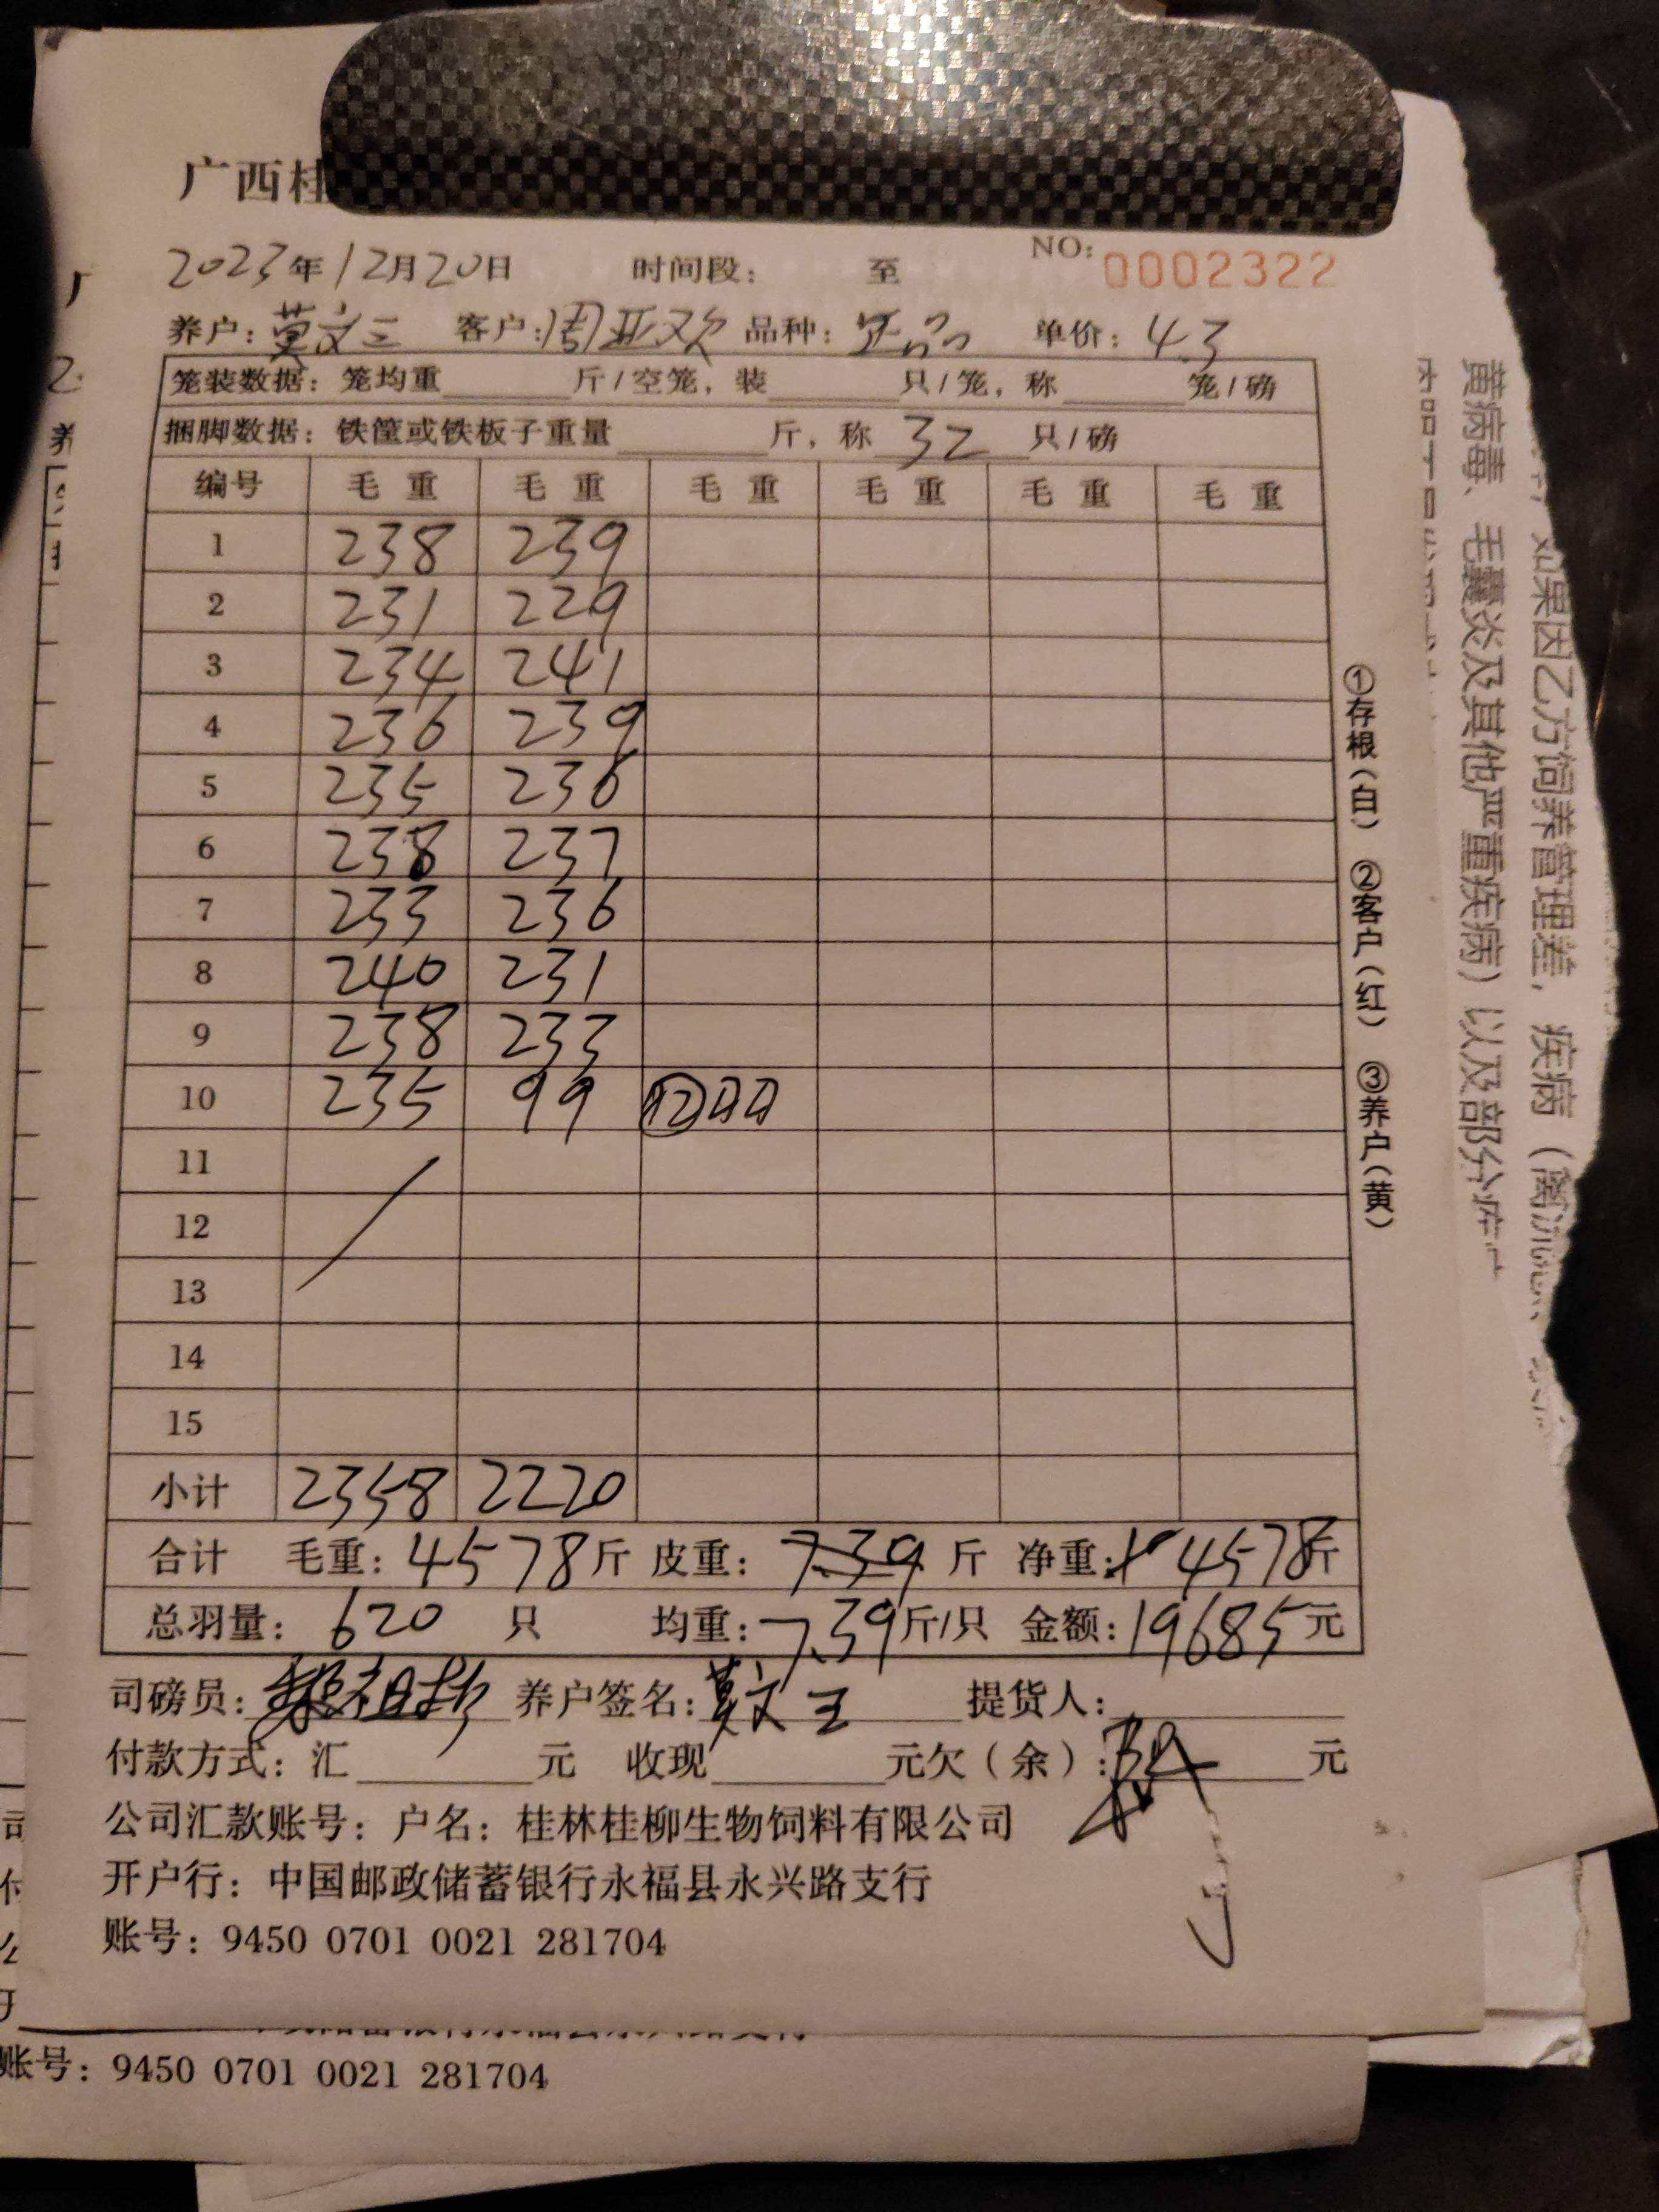 广西桂
2023年12月20日 时间段: 至 NO: 0002322
养户: 莫文三 客户: 周亚欢 品种: 正品 单价: 4.3
笼装数据: 笼均重 斤/空笼, 装 只/笼, 称 笼/磅
捆脚数据: 铁筐或铁板子重量 斤, 称 32 只/磅
编号 毛重 毛重 毛重 毛重 毛重 毛重
1 238 239
2 231 229
3 234 241
4 236 239
5 235 236
6 238 237
7 233 236
8 240 231
9 238 233
10 235 99
11
12
13
14
15
小计 2358 2220
合计 毛重: 4578斤 皮重: 7.39 斤 净重: 4578斤
总羽量: 620 只 均重: 7.39斤/只 金额: 19685元
司磅员: 养户签名: 莫文三 提货人:
付款方式: 汇 元 收现 元欠(余): 元
公司汇款账号: 户名: 桂林桂柳生物饲料有限公司
开户行: 中国邮政储蓄银行永福县永兴路支行
账号: 9450 0701 0021 281704
①存根(白) ②客户(红) ③养户(黄)
如果因乙方饲养管理差, 疾病(禽流
黄病毒、毛囊炎及其他严重疾病)以及部分
账号: 9450 0701 0021 281704